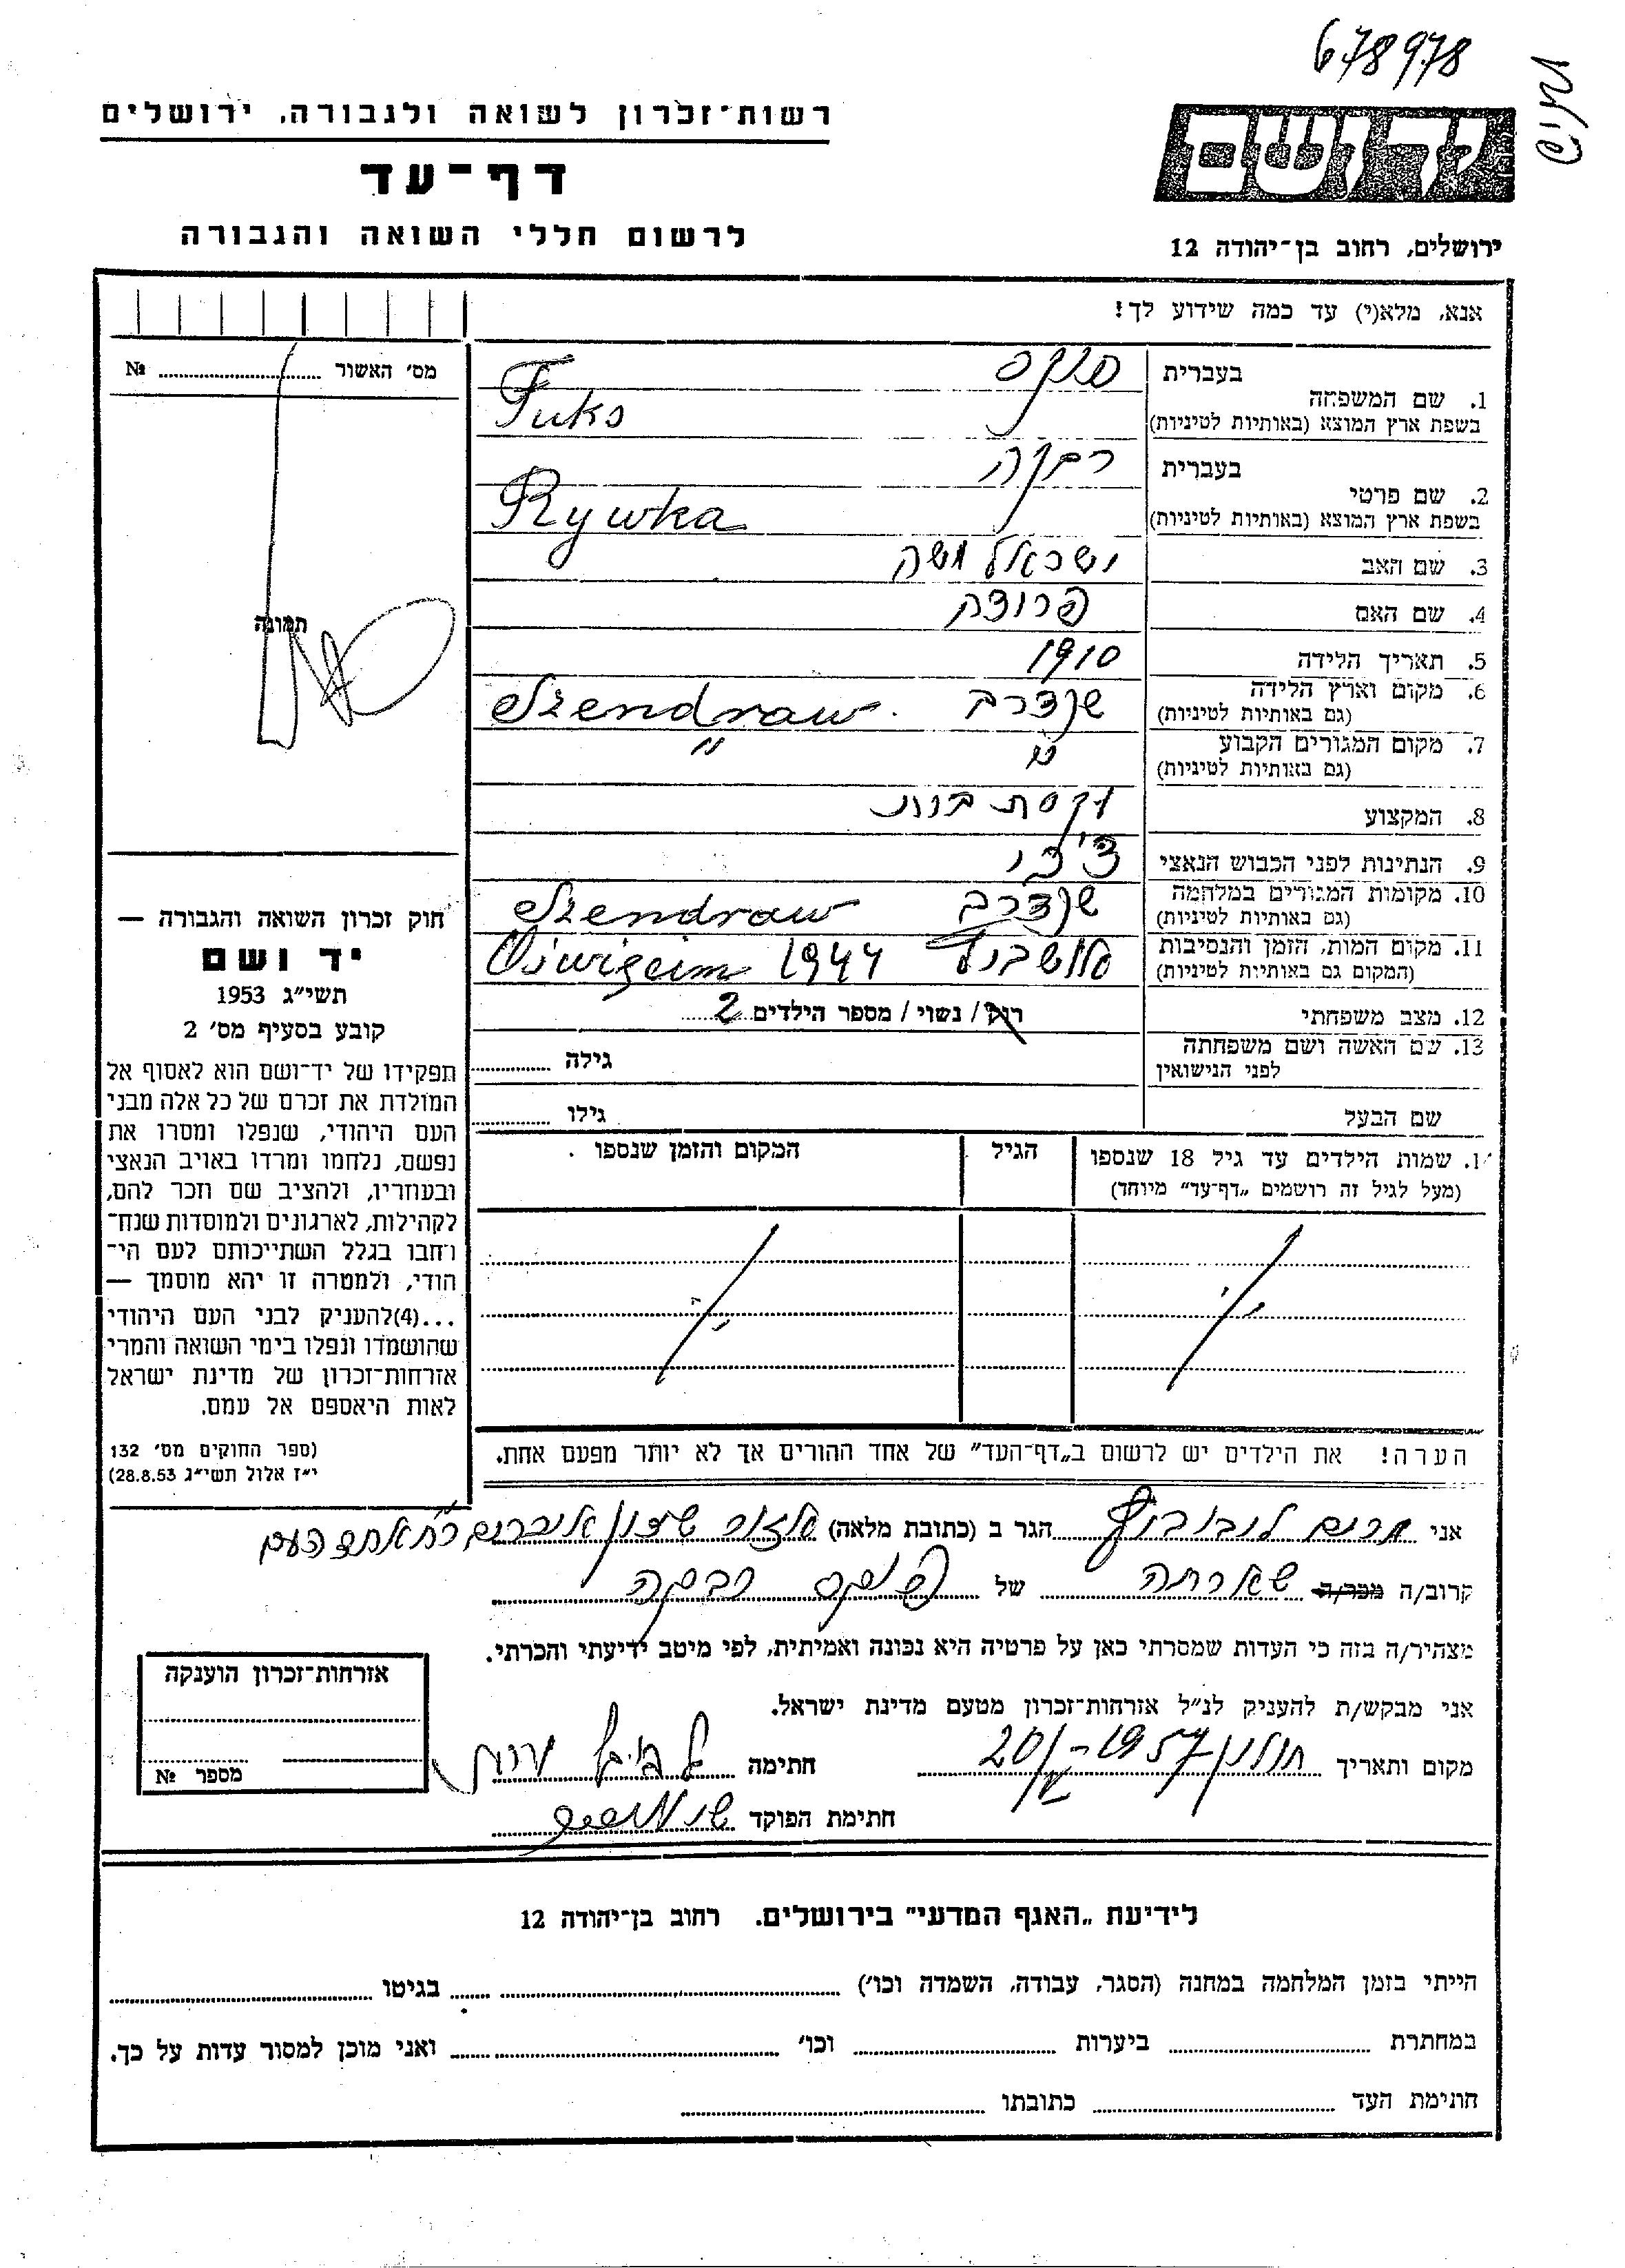 678978
רשות-זכרון לשואה ולגבורה, ירושלים
דף-עד
לרשום חללי השואה והגבורה
ידושם
ירושלים, רחוב בן-יהודה 12
אנא, מלא(י) עד כמה שידוע לך!
מס' האשור № ........
תמונה
1. שם המשפחה
בעברית פוקס
בשפת ארץ המוצא (באותיות לטיניות) Fuks
2. שם פרטי
בעברית רבקה
בשפת ארץ המוצא (באותיות לטיניות) Rywka
3. שם האב ישראל משה
4. שם האם
5. תאריך הלידה 1910
6. מקום וארץ הלידה
(גם באותיות לטיניות) Szendraw
7. מקום המגורים הקבוע
(גם באותיות לטיניות) "
8. המקצוע עקרת בית
9. הנתינות לפני הכבוש הנאצי
10. מקומות המגורים במלחמה
(גם באותיות לטיניות) Szendraw
11. מקום המות, הזמן והנסיבות
(המקום גם באותיות לטיניות) 1944
12. מצב משפחתי רוק / נשוי / מספר הילדים 2
13. שם האשה ושם משפחתה
לפני הנישואין גילה ........
שם הבעל גילו ........
14. שמות הילדים עד גיל 18 שנספו
(מעל לגיל זה רושמים „דף-עד" מיוחד)
הגיל
המקום והזמן שנספו
חוק זכרון השואה והגבורה —
יד ושם
תשי"ג 1953
קובע בסעיף מס' 2
תפקידו של יד-ושם הוא לאסוף אל
המולדת את זכרם של כל אלה מבני
העם היהודי, שנפלו ומסרו את
נפשם, נלחמו ומרדו באויב הנאצי
ובעוזריו, ולהציב שם וזכר להם,
לקהילות, לארגונים ולמוסדות שנח-
רחבו בגלל השתייכותם לעם הי-
הודי, ולמטרה זו יהא מוסמך —
...(4)להעניק לבני העם היהודי
שהושמדו ונפלו בימי השואה והמרי
אזרחות-זכרון של מדינת ישראל
לאות היאספם אל עמם.
(ספר החוקים מס' 132
י"ז אלול תשי"ג 28.8.53)
הערה! את הילדים יש לרשום ב„דף-העד" של אחד ההורים אך לא יותר מפעם אחת.
אני מרים הגר ב (כתובת מלאה) אזור
קרוב/ה מכר/ה של פוקס רבקה
מצהיר/ה בזה כי העדות שמסרתי כאן על פרטיה היא נכונה ואמיתית, לפי מיטב ידיעתי והכרתי.
אני מבקש/ת להעניק לנ"ל אזרחות-זכרון מטעם מדינת ישראל.
מקום ותאריך חולון 1957 חתימה
חתימת הפוקד
אזרחות-זכרון הוענקה
מספר №
לידיעת „האגף המדעי" בירושלים. רחוב בן-יהודה 12
הייתי בזמן המלחמה במחנה (הסגר, עבודה, השמדה וכו') ........ בגיטו ........
במחתרת ........ ביערות ........ וכו' ........ ואני מוכן למסור עדות על כך.
חתימת העד ........ כתובתו ........